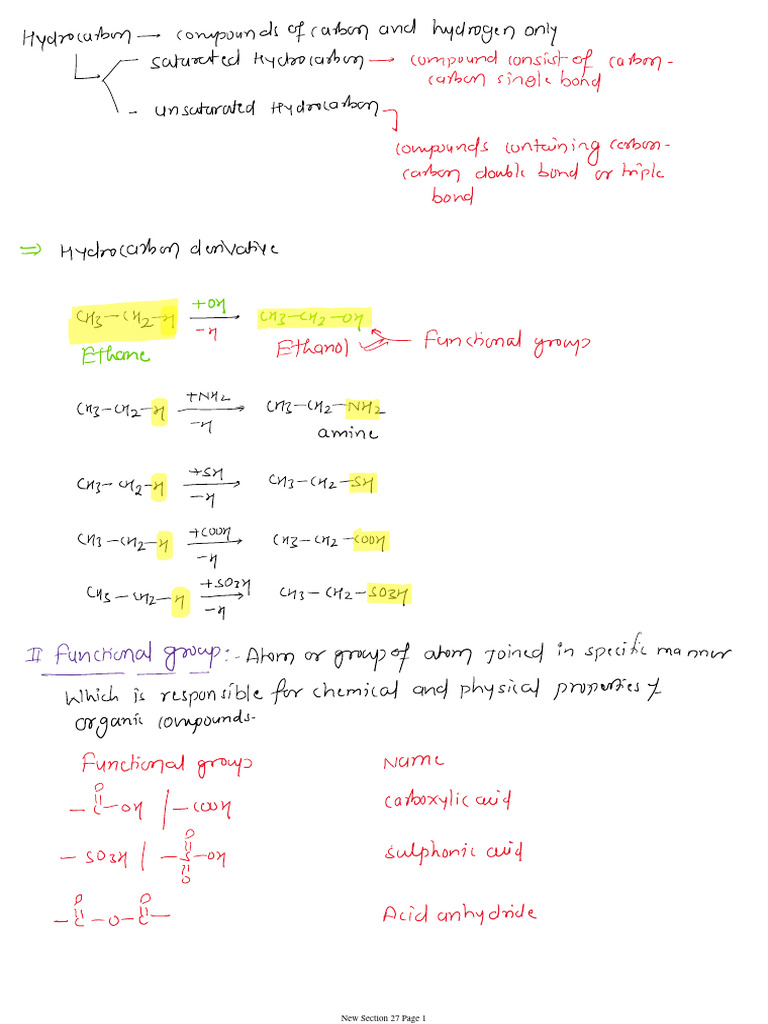 Hydrocarbon — compounds of carbon and hydrogen only
- saturated Hydrocarbon → compound consist of carbon-
carbon single bond
- unsaturated Hydrocarbon
compounds containing carbon-
carbon double bond or triple
bond
⇒ Hydrocarbon derivative
CH3-CH2-H +OH -H → CH3-CH2-OH
Ethane Ethanol Functional group
CH3-CH2-H +NH2 -H → CH3-CH2-NH2
amine
CH3-CH2-H +SH -H → CH3-CH2-SH
CH3-CH2-H +COOH -H → CH3-CH2-COOH
CH3-CH2-H +SO3H -H → CH3-CH2-SO3H
II Functional group:- Atom or group of atom Joined in specific manner
Which is responsible for chemical and physical properties of
organic compounds.
Functional group Name
-C-OH | -COOH carboxylic acid
O
-SO3H | -S-OH sulphonic acid
O
O
-C-O-C- Acid anhydride
O O
New Section 27 Page 1